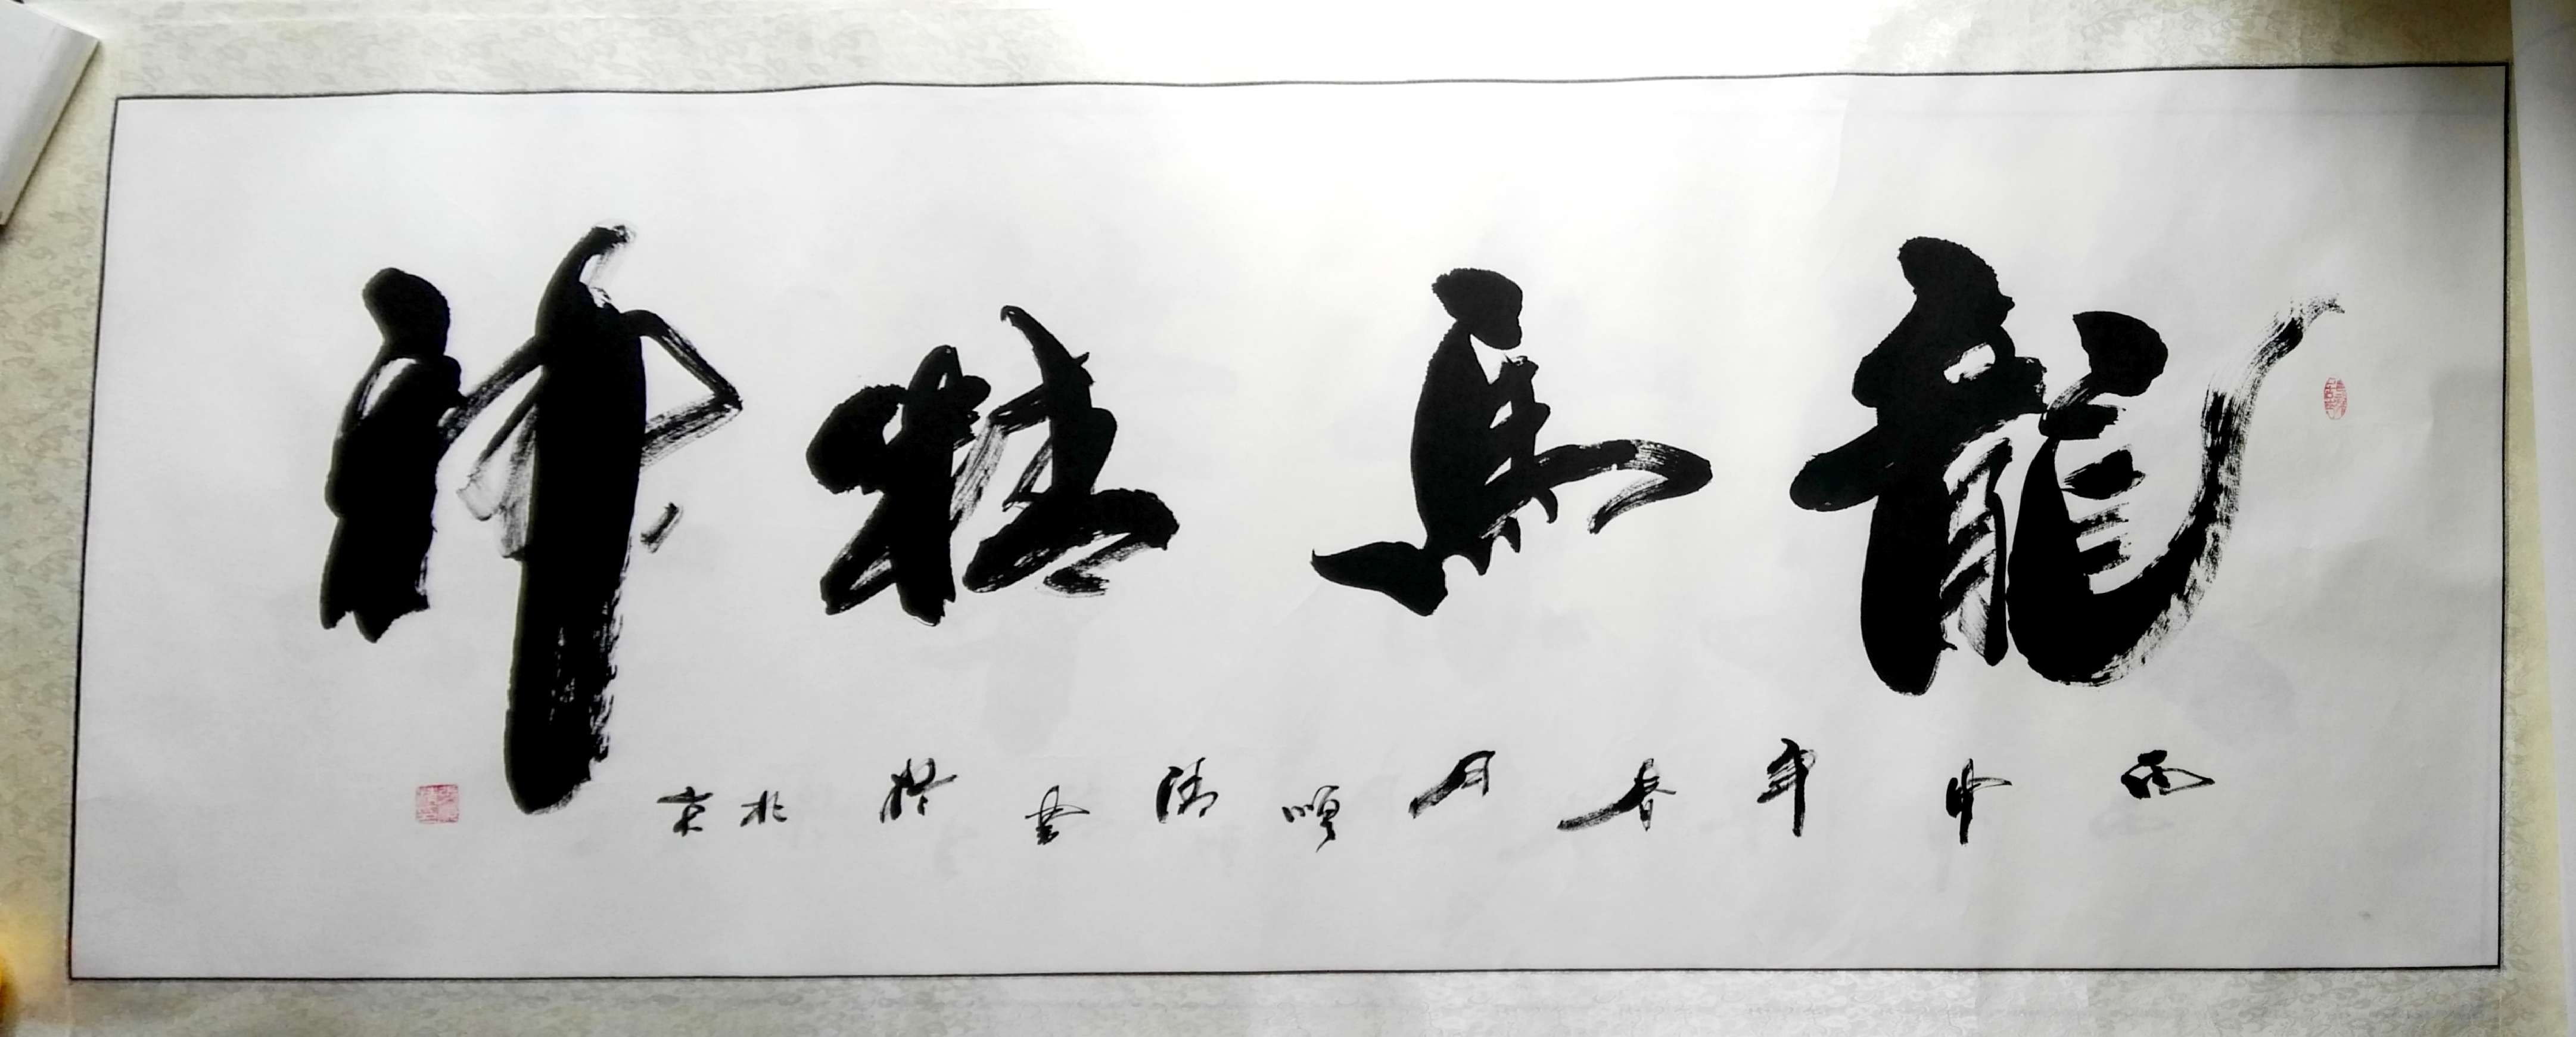 龍馬精神
丙申年春月順清書於北京